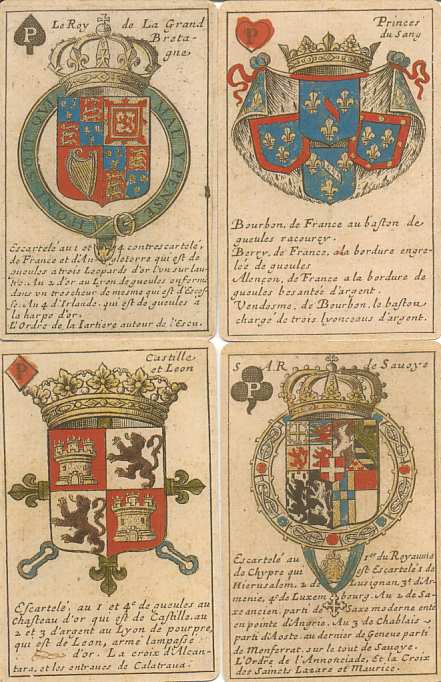 P
Le Roy de La Grand
Bretagne
HONI SOIT QUI MAL Y PENSE
Escartelé au 1 et 4 contrescartelé,
de France et d'Angleterre qui est de
gueules a trois Leopards d'or l'un sur lau
tre. Au 2 d'or au Lyon de gueules enfermé
dans vn trescheur de mesme qui est d'Escos
se. Au 4 d'Irlande, qui est de gueules à
la harpe d'or.
L'Ordre de la Iartiere autour de l'Escu.
P
Princes
du Sang
Bourbon, de France au baston de
gueules racourcy.
Berry, de France, a la bordure engre-
lée de gueules
Alençon, de France a la bordure de
gueules besantée d'argent.
Vendosme, de Bourbon, le baston
chargé de trois lyonceaux d'argent.
P
Castille
et Leon
Escartelé, au 1 et 4e de gueules au
chasteau d'or qui est de Castille. au
2 et 3 d'argent au Lyon de pourpre,
qui est de Leon, armé lampassé
d'or. La croix d'Alcan-
tara, et les entraues de Calatraua.
P
S AR de Sauoye
Escartelé au 1er du Royaume
de Chypre qui est Escartelé de
Hierusalem, 2 de Lusignan, 3e d'Ar-
menie, 4e de Luxembourg. Au 2 de Sa-
xe ancien, parti de Saxe moderne ente
en pointe d'Angrie. Au 3 de Chablais
parti d'Aoste. au dernier de Geneue parti
de Monferrat. sur le tout de Sauoye.
L'Ordre de l'Annonciade, Et la Croix
des Saincts Lazare et Maurice.